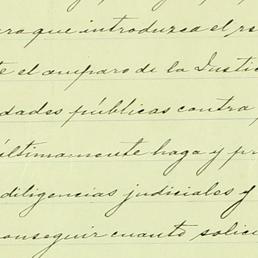 ara que introduzca el re
te el amparo de la Justic
idades públicas contra
últimamente haga y pr
diligencias judiciales y
conseguir cuanto solic